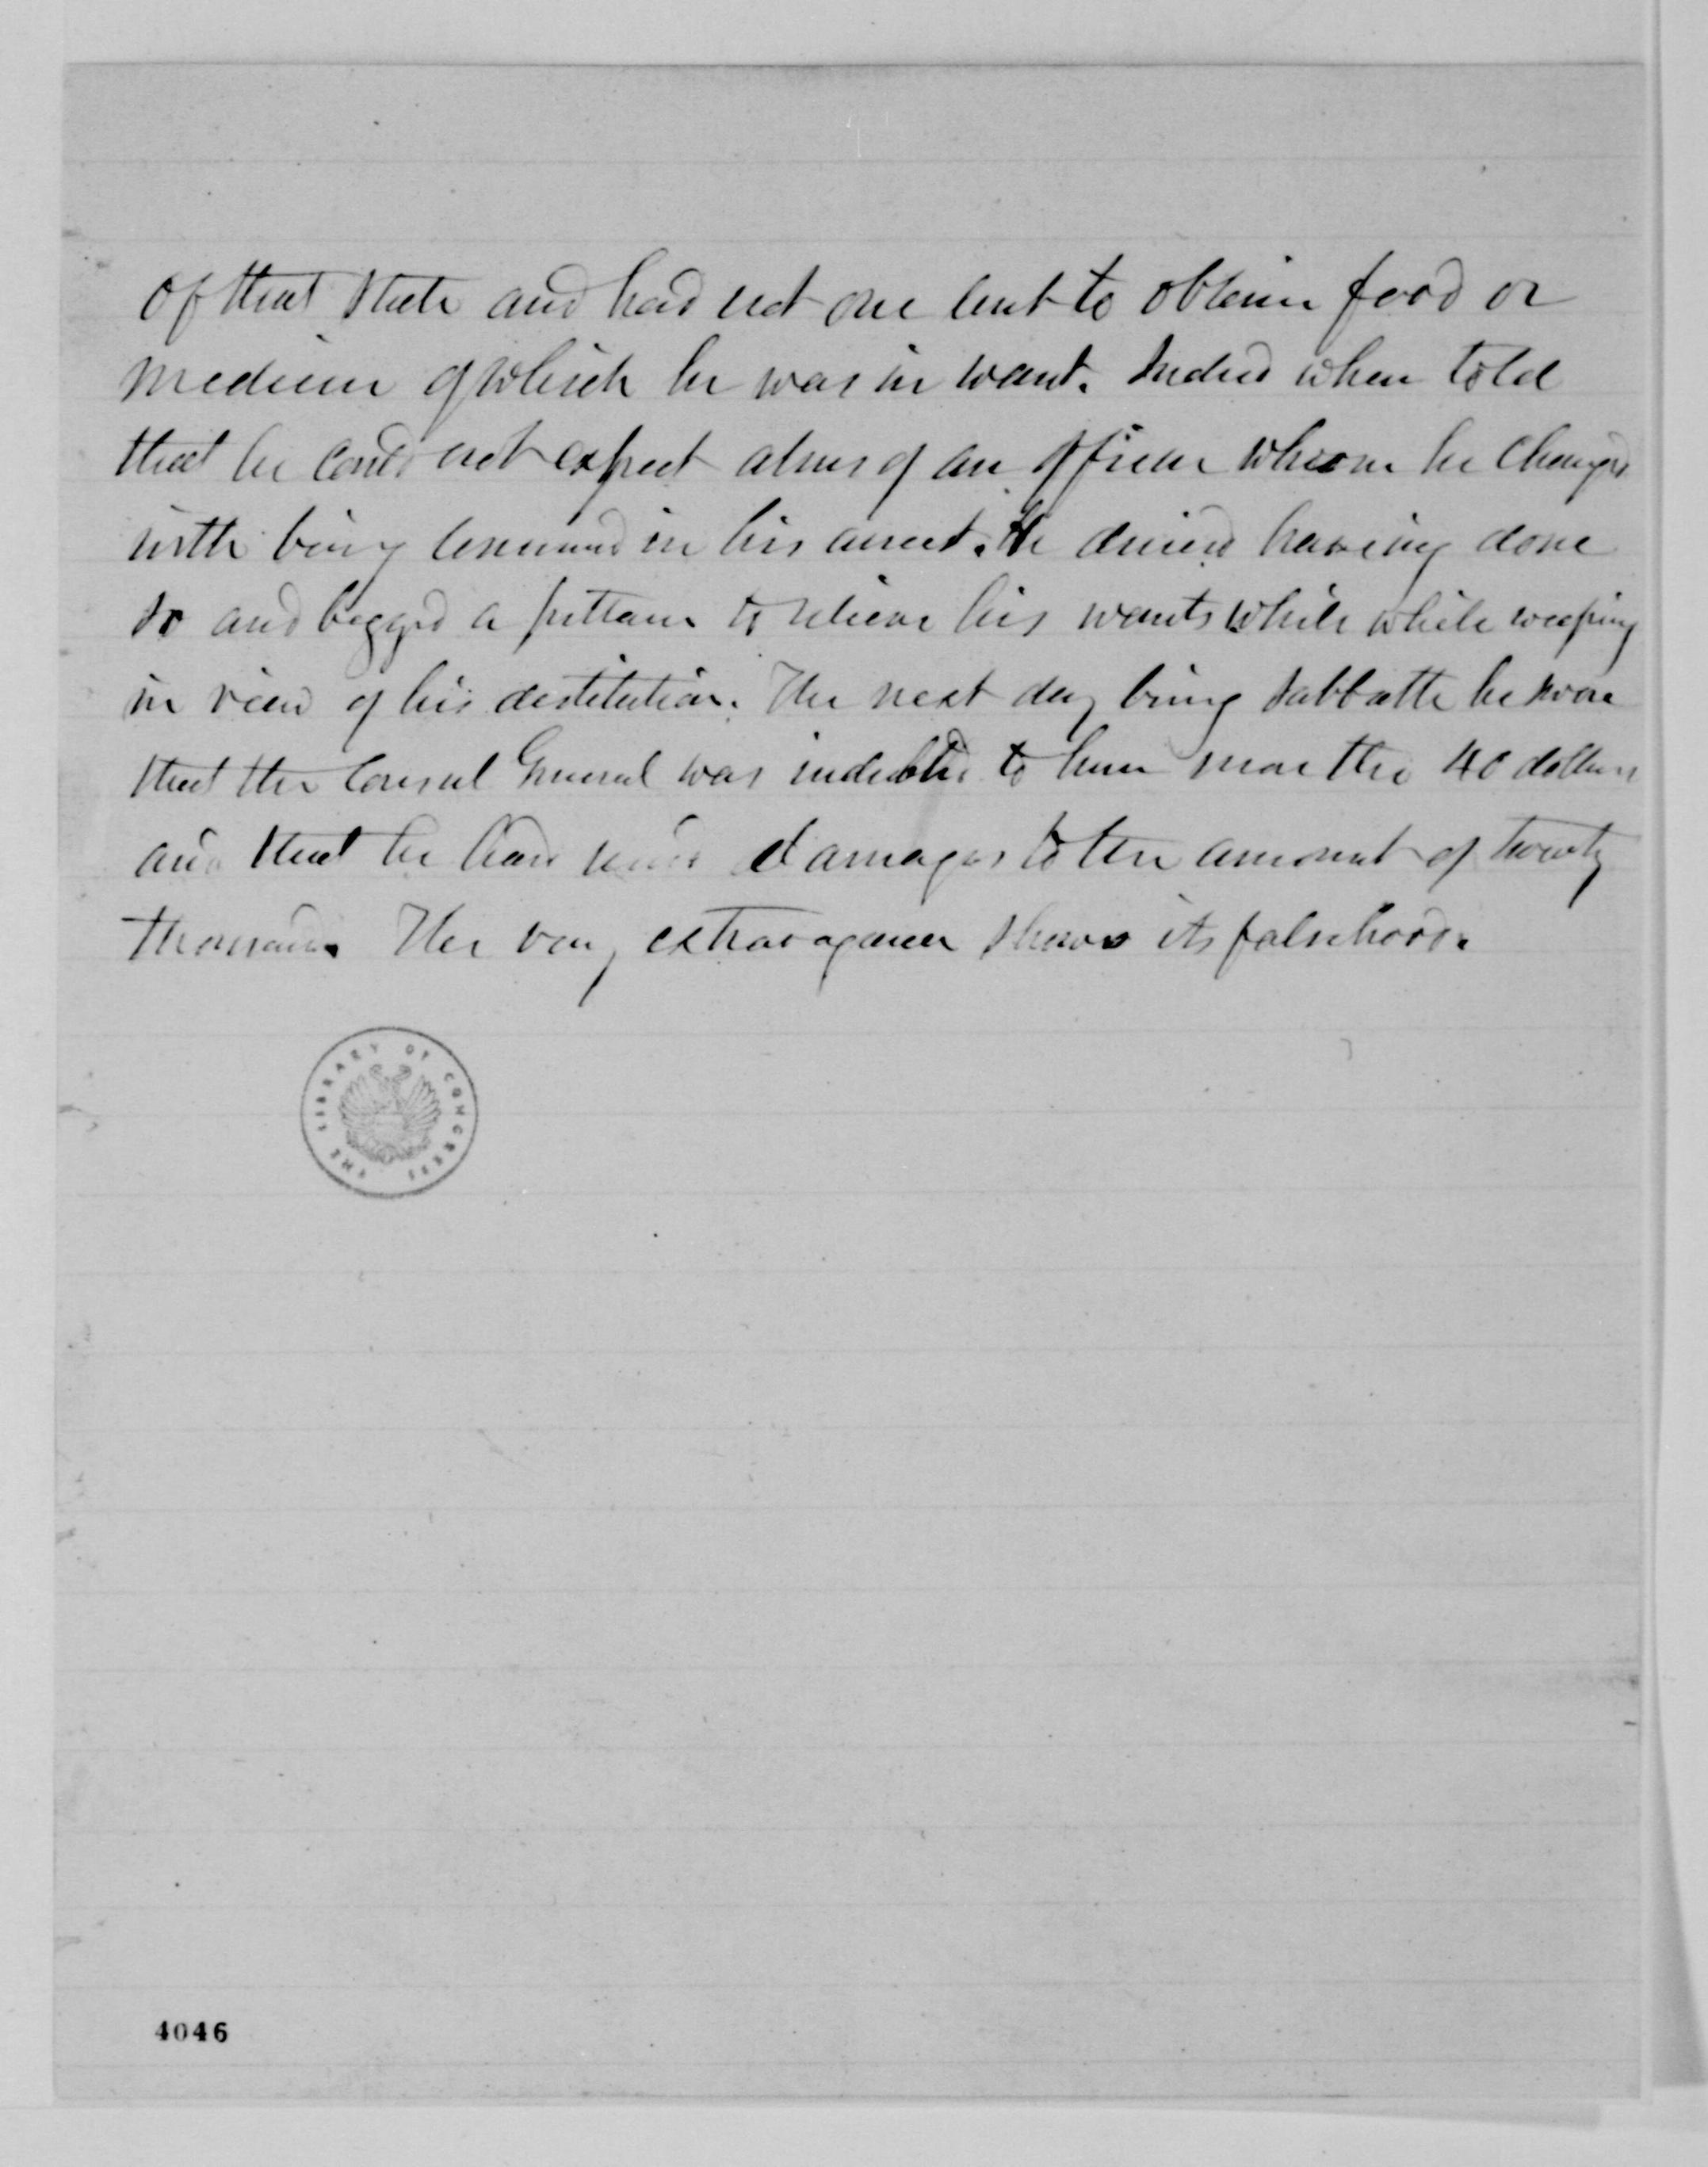 of that State and had not one cent to obtain food or
medicine of which he was in want. Indeed when told
that he could not expect alms of an officer whom he charged
with being concerned in his arrest. He denied having done
so and begged a pittance to relieve his wants while while weeping
in view of his destitution. The next day being Sabbath he swore
that the Consul General was indebted to him more than 40 dollars
and that he had damages to the amount of twenty
thousand. The very extravagance shows its falsehood.
THE LIBRARY OF CONGRESS
4046